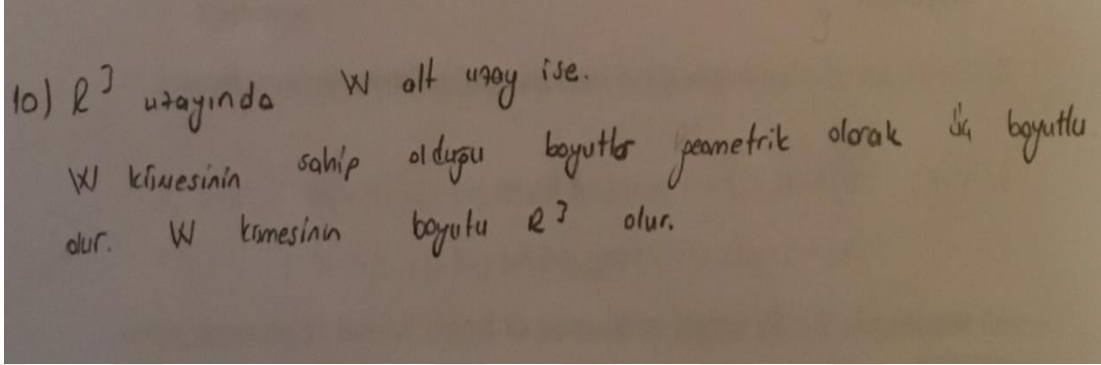 10) R³ uzayında W alt uzay ise.
W kümesinin sahip olduğu boyutlar geometrik olarak üç boyutlu
olur. W kümesinin boyutu R³ olur.